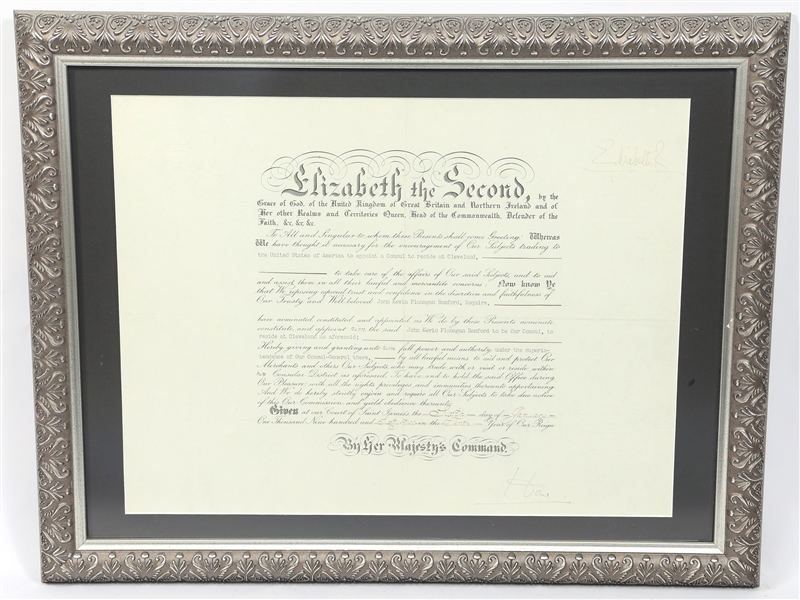 Elizabeth R
Elizabeth the Second, by the
Grace of God, of the United Kingdom of Great Britain and Northern Ireland and of
Her other Realms and Territories Queen, Head of the Commonwealth, Defender of the
Faith, &c, &c, &c.
To All and Singular to whom these Presents shall come Greeting! Whereas
We have thought it necessary for the encouragement of Our Subjects trading to
the United States of America to appoint a Consul to reside at Cleveland,
to take care of the affairs of Our said Subjects, and to aid
and assist them in all their lawful and mercantile concerns: Now know Ye
that We, reposing special trust and confidence in the discretion and faithfulness of
Our Trusty and Well-beloved John Kevin Finnegan Bumford, Esquire,
have nominated, constituted and appointed, as We do by these Presents nominate
constitute and appoint him the said John Kevin Finnegan Bumford to be Our Consul, to
reside at Cleveland as aforesaid;
Hereby giving and granting unto him full power and authority, under the superin-
tendence of Our Consul-General there, by all lawful means to aid and protect Our
Merchants and other Our Subjects who may trade with or visit or reside within
Consular District as aforesaid. To have and to hold the said Office during
Our Pleasure, with all the rights privileges and immunities thereunto appertaining.
And We do hereby strictly enjoin and require all Our Subjects to take due notice
of this Our Commission, and yield obedience thereunto.
Given at our Court of Saint James's, the day of January
One Thousand Nine hundred and in the Year of Our Reign.
By Her Majesty's Command.
Home